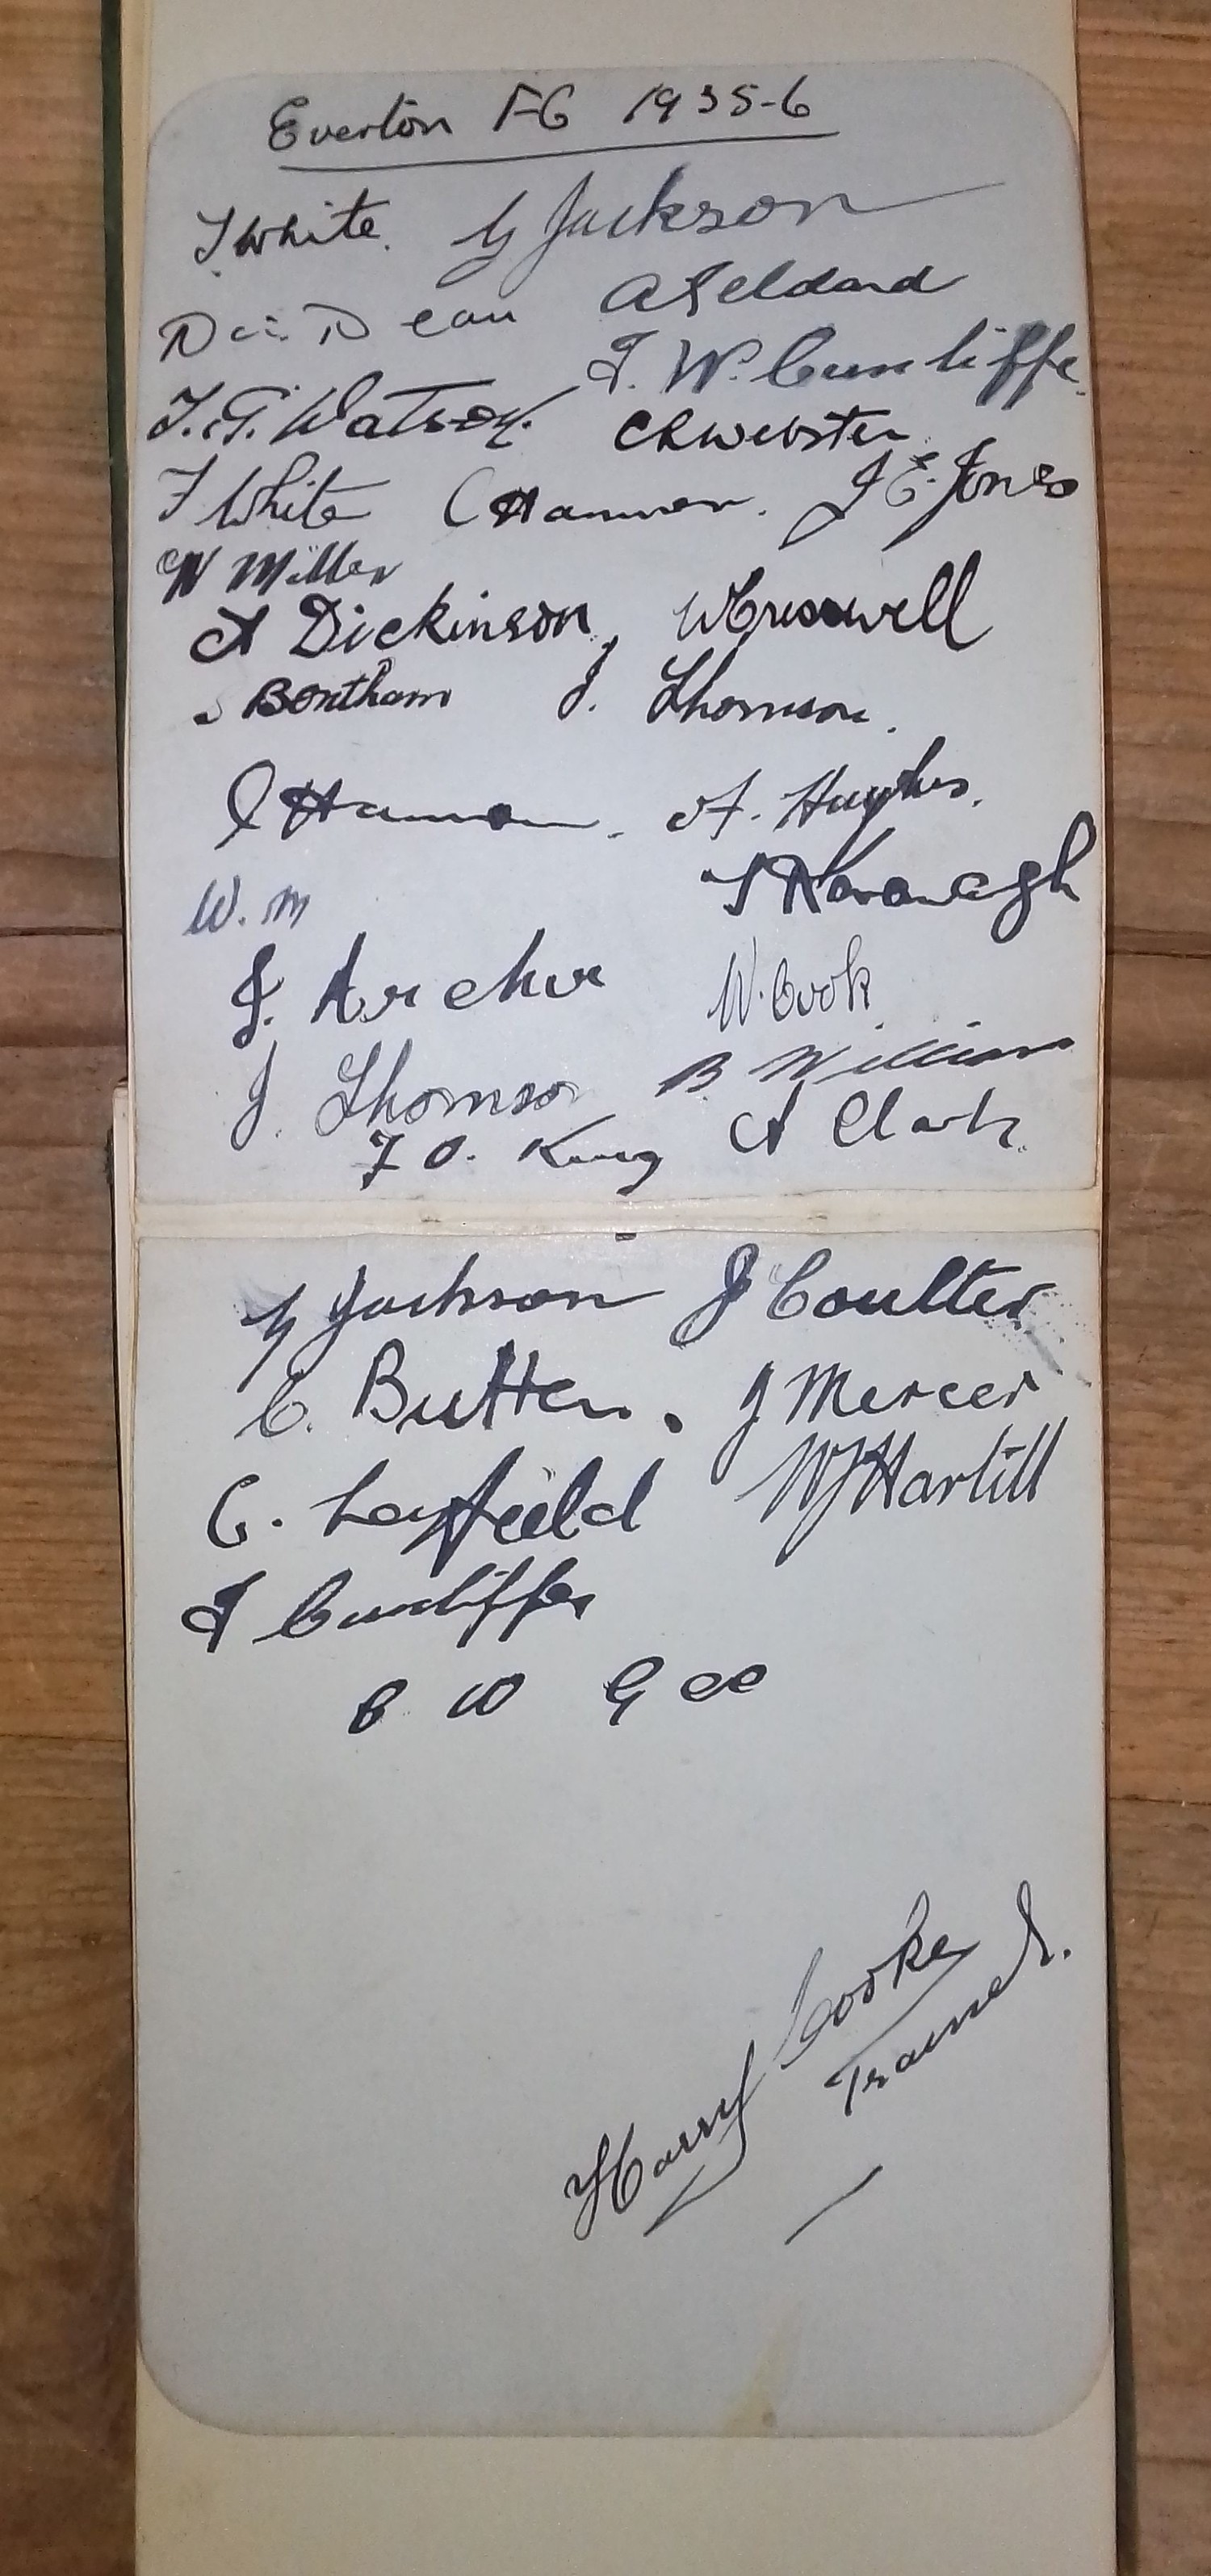 Everton FC 1935-6
T White. G Jackson
Dixie Dean A Geldard
T. G. Watson. J. W. Cunliffe.
T White C Hannon. C R Webster. J. E. Jones
W Miller
A Dickinson, W Cresswell
Bentham J. Thomson.
J. Hughes.
W. M T Kavanagh
J. Archer W. Cook
J. Thomson B Williams
F O. King A Clark
G Jackson J Coulter
C. Butten. J Mercer
C. Leyfield W J Hartill
J Cunliffe
C W Gee
Harry Cooke
Trainer.